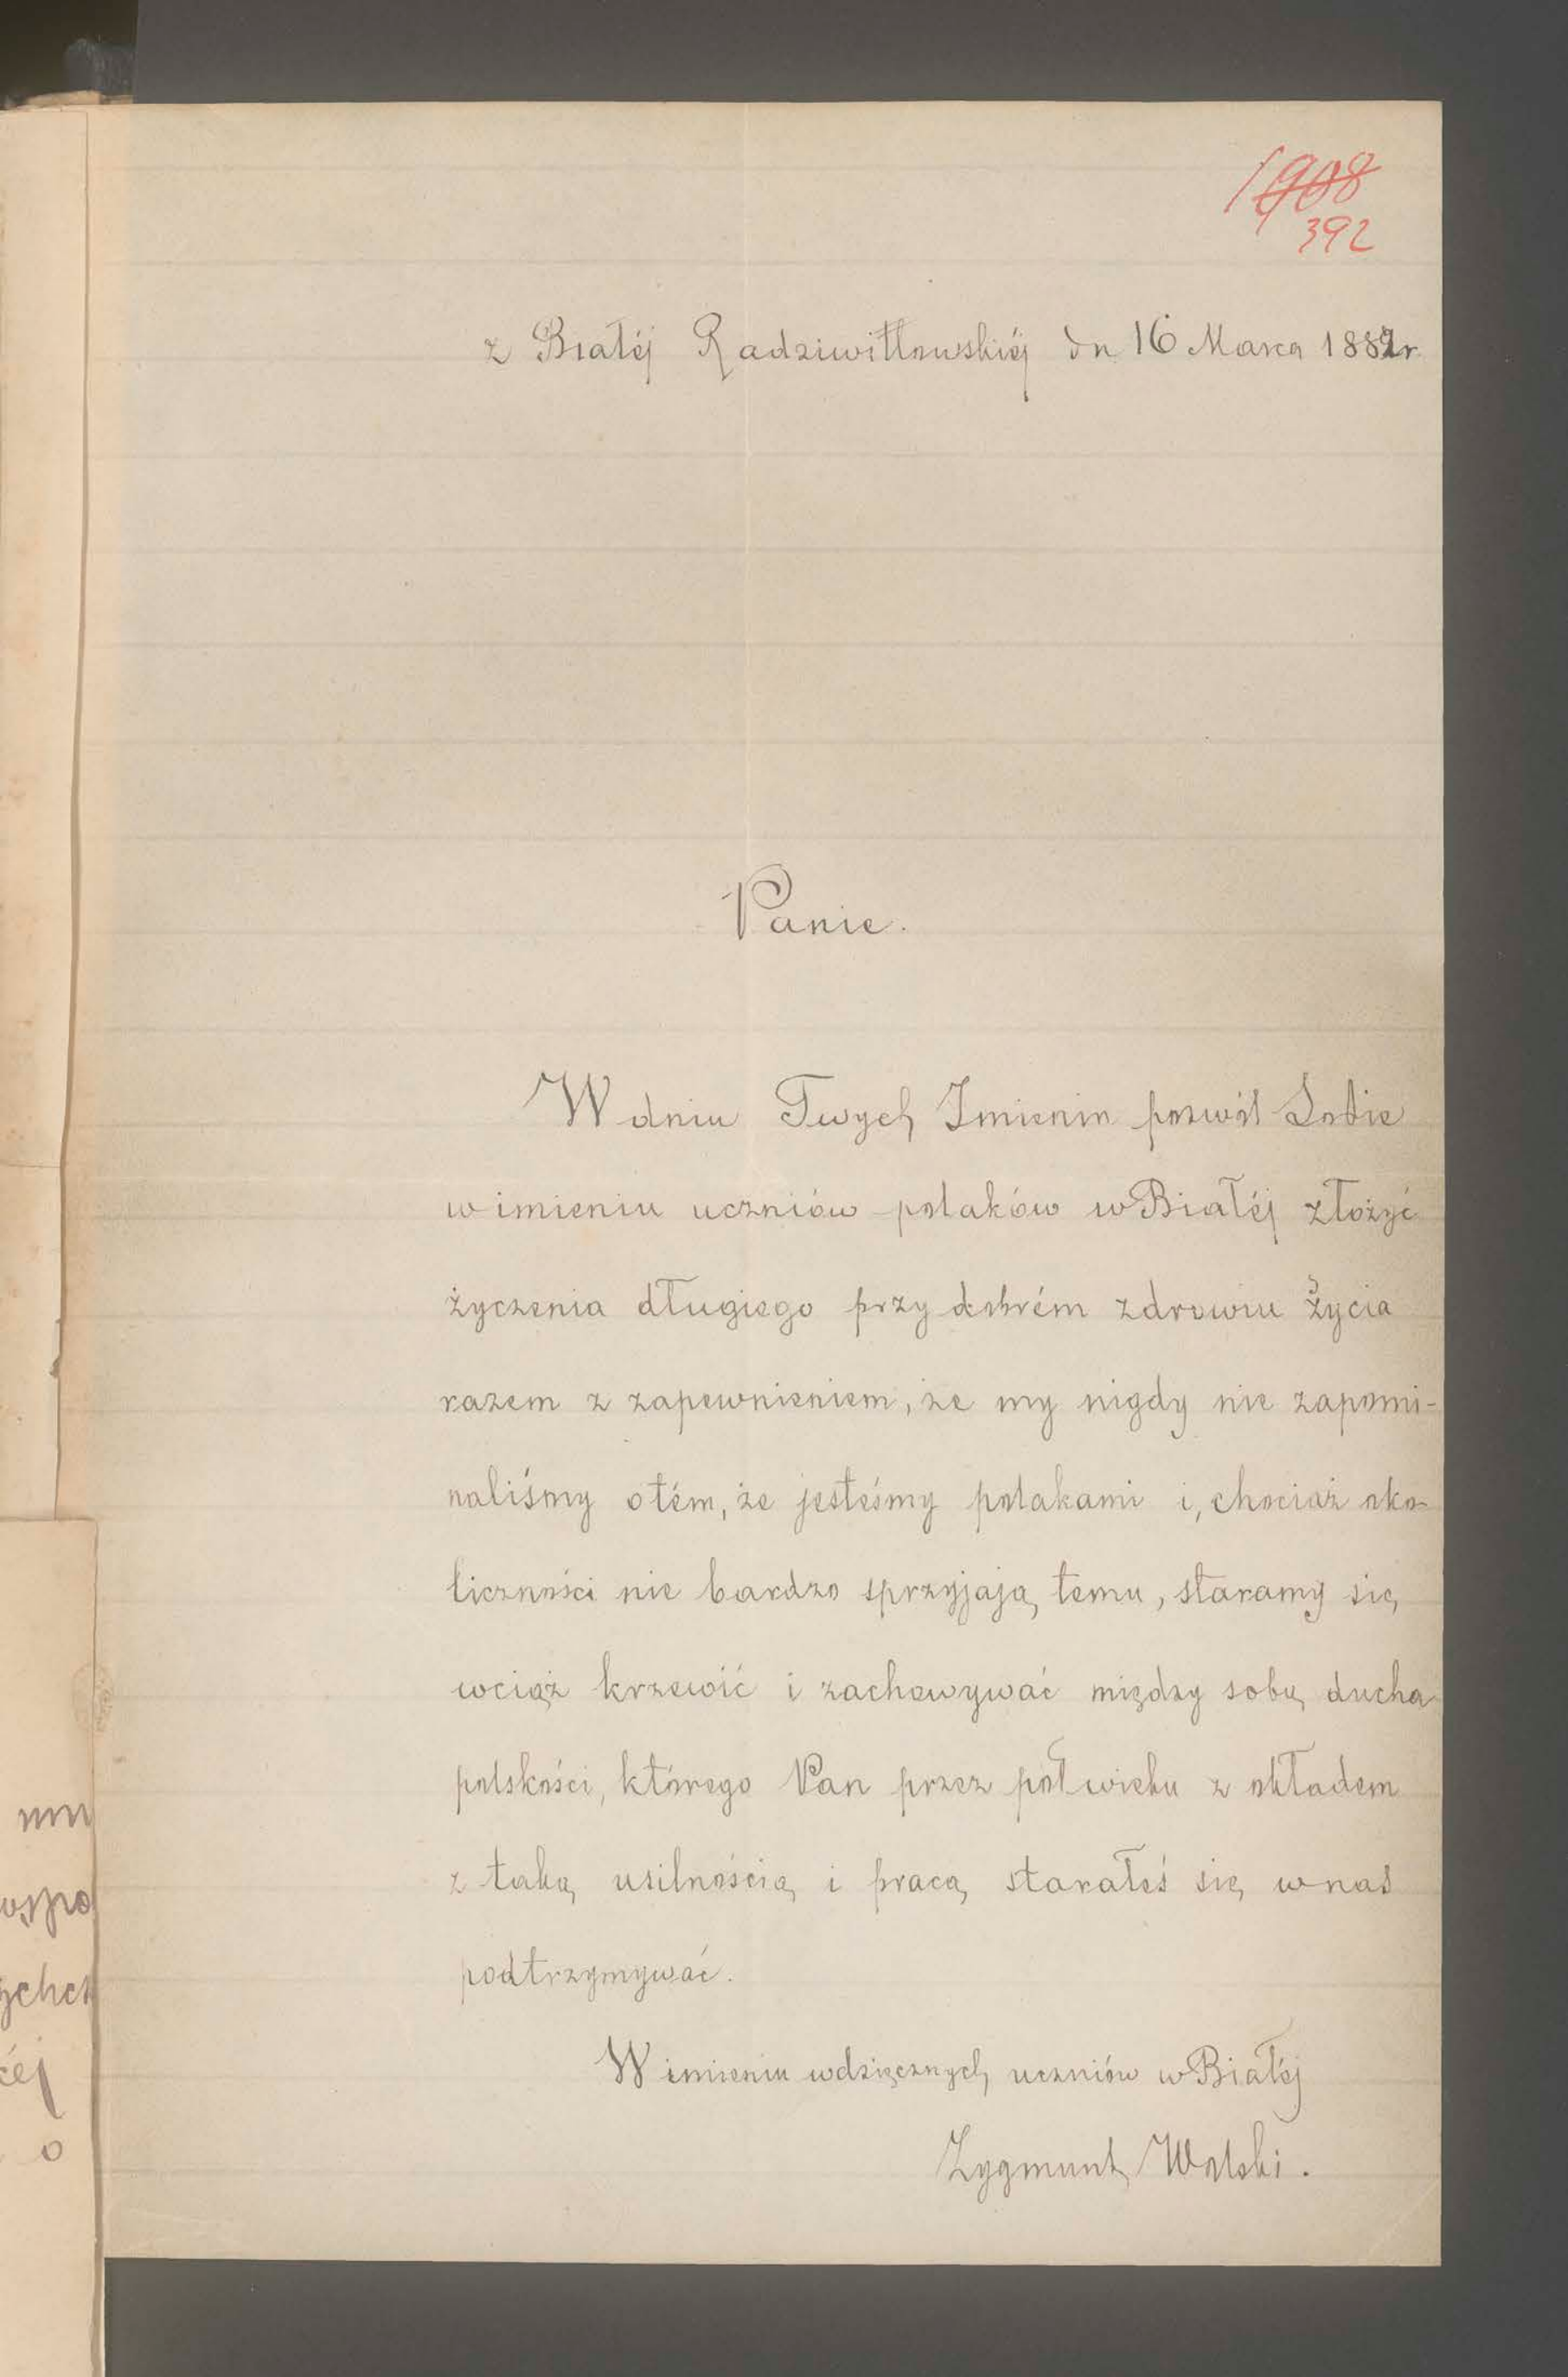 1908
392
z Białéj Radziwiłłowskiéj dn 16 Marca 1882r.
Panie.
W dniu Twych Imienin pozwól Sobie
w imieniu uczniów polaków w Białéj złożyć
życzenia długiego przy dobrém zdrowiu życia
razem z zapewnieniem, że my nigdy nie zapomi-
naliśmy o tém, że jesteśmy polakami i, chociaż oko-
liczności nie bardzo sprzyjają temu, staramy się
wciąż krzewić i zachowywać między sobą ducha
polskości, którego Pan przez pół wieku z okładem
z taką usilnością i pracą starałeś się w nas
podtrzymywać.
W imieniu wdzięcznych uczniów w Białéj
Zygmunt Wolski.